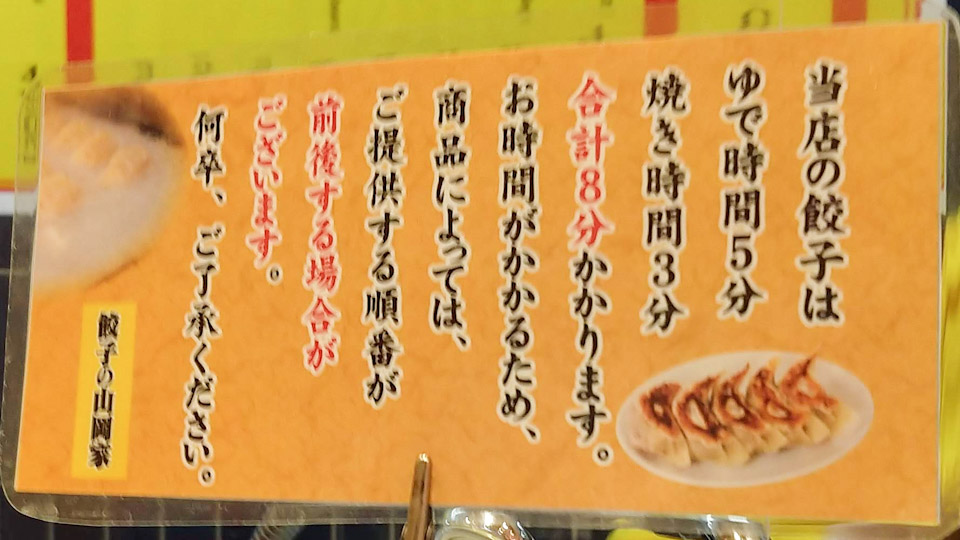 当店の餃子は
ゆで時間5分
焼き時間3分
合計8分かかります。
お時間がかかるため、
商品によっては、
ご提供する順番が
前後する場合が
ございます。
何卒、ご了承ください。
餃子の山岡家